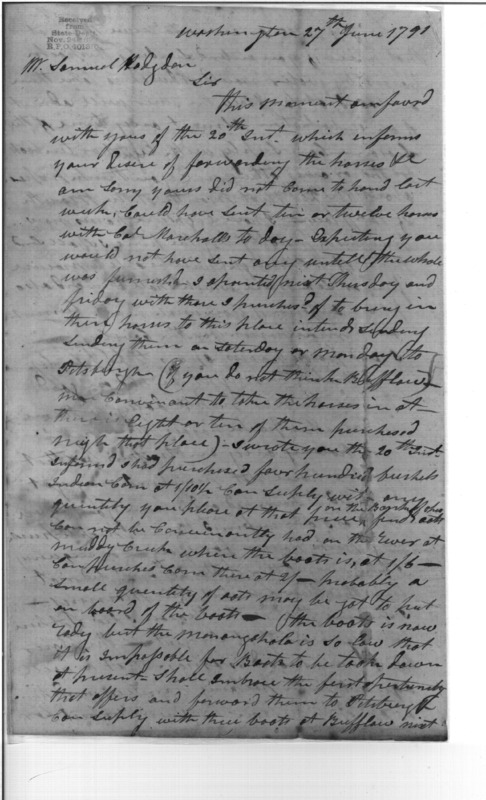 Received
from
State Dept.
Washington 27th June 1791
Mr. Samuel Hodgdon
Sir
This moment am favord
with yours of the 20th Inst. which informs
your Desire of forwarding the horses &c
am Sorry yours did not Come to hand last
week, Could have Sent ten or twelve horses
with Cal Marshalls to day – Expecting you
would not have Sent any untill the whole
was furnished I apointed next Thursday and
friday with those I purchesd. of to bring in
their horses to this place intend Sending
Sending them on Saterday or monday to
Pitsburgh (If you do not think Bufflow
more Convenant to take the horses in at
there is Eight or ten of them purchased
nigh that place) – I wrote you the 20th Inst
Informd I had purchesed four hundred bushels
Indian Corn at 1/10½ Can Supply with any
quantity you please at that price on the Bank
oats
Can not be Conveniently had on the River at
muddy Creek where the boats is, at 1/6 –
Can purches Corn there at 2/ – probably a
Small quantity of oats may be got to put
on board of the boats – the boats is now
Redy but the monongohala is So low that
it is Impossable for Boats to be took down
at present – Shall Embrace the first opertunity
that offers and forward them to Pitsburg
Can Supply with three boats at Bufflow next